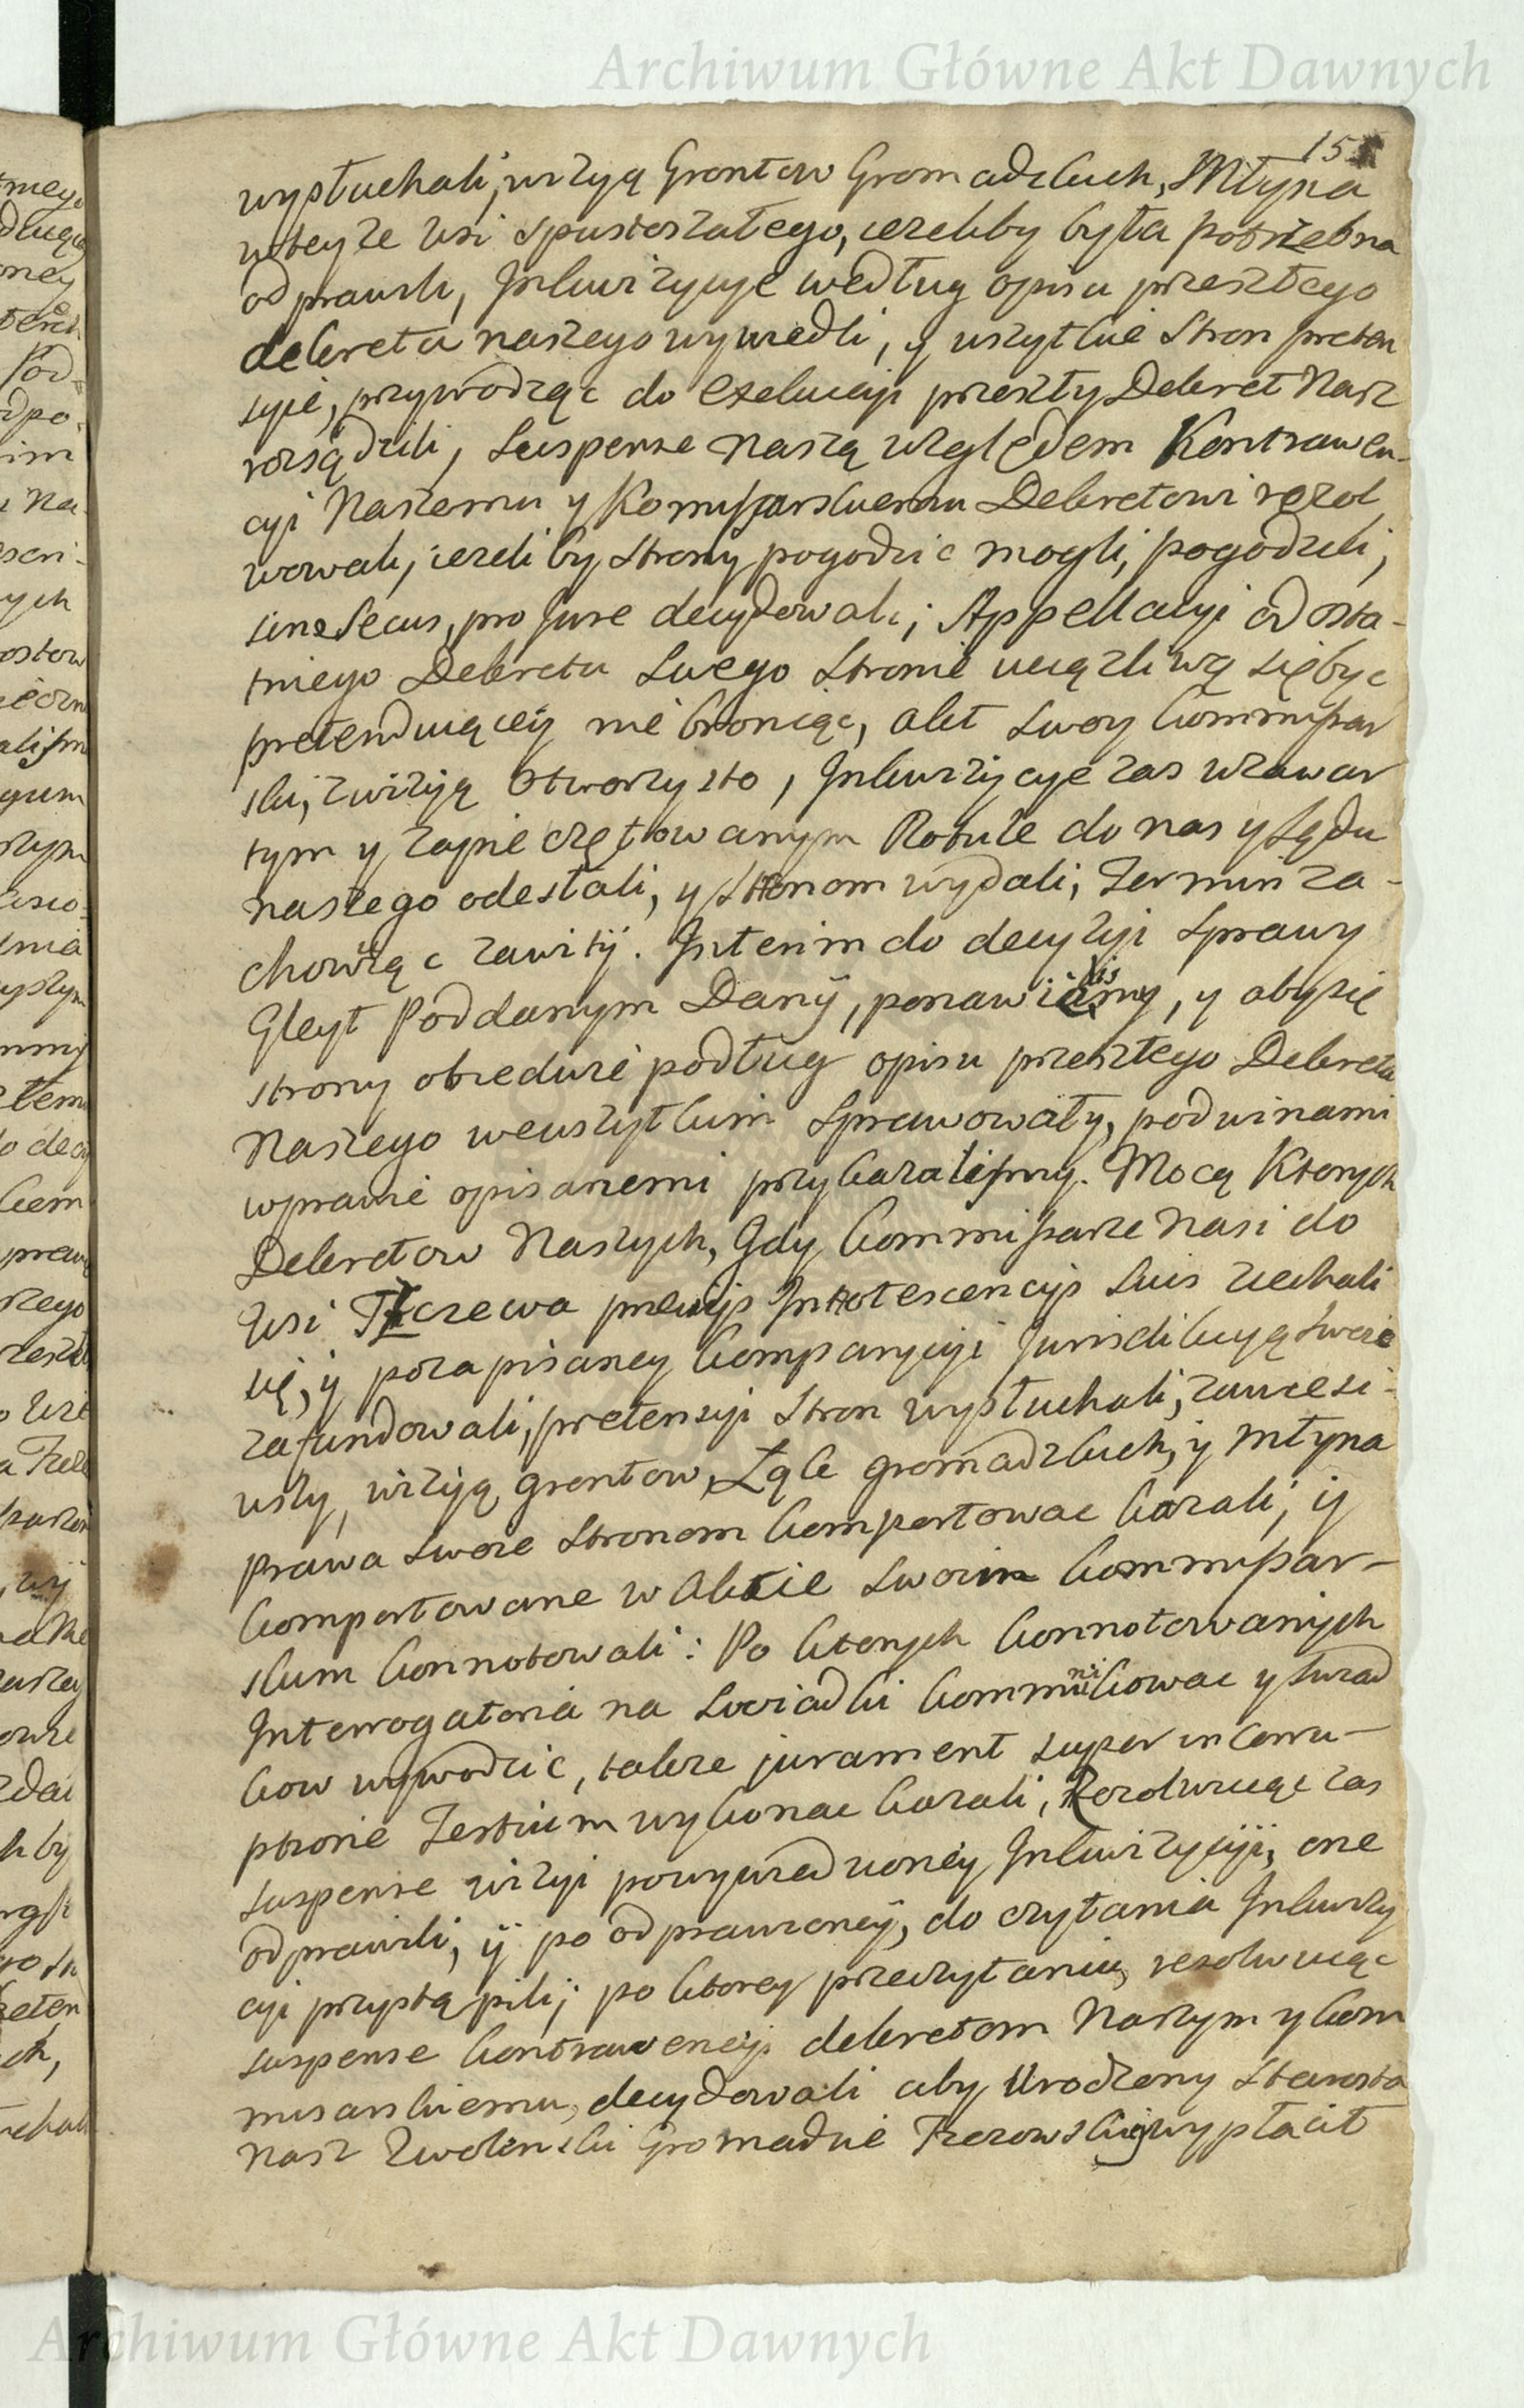 Archiwum Główne Akt Dawnych
15
wysłuchali, wizyą Grontow Gromadzkich, Młyna
wteyze wsi spustoszałego, iezeliby była potrzebna
odprawili, Inkwizycye według opisu przeszłego
dekretu naszego wywiedli, y wszytkie Stron preten
syie, przywodząc do Exekucyi przeszły Dekret Nasz
rozsądzili, Suspense naszą względem Kontrawen-
cyi Naszemu y Komissarskiemu Dekretowi rezol
wowali, iezeliby Strony pogodzic mogli, pogodzili,
sin secus, pro Jure decydowali; Appellacyi od osta-
tniego Dekretu Swego Stronie uciązliwą siębyc
pretenduiącey nie broniąc, Akt Swoy Commissar
ski, zwizyą otworzysto, Inkwizycye zas wzawar
tym y zapieczętowanym Rotule do nas y Sądu
naszego odesłali, y Stronom wydali, Termin za-
chowuiąc zawity. Interim do decyzyi Sprawy
Gleyt Poddanym Dany, ponawialismy, y abysię
strony obiedwie podług opisu przeszłego Dekretu
Naszego wewszytkim Sprawowały, podwinami
wprawie opisanemi przykazalismy. Mocą Ktorych
Dekretow Naszych, Gdy Commissarze Nasi do
Wsi Tczewa previjs Innotescencijs Suis ziechali
się, y pozapisaney Comparycyi Jurisdikcyą Swoie
zafundowali, pretensyi Stron wysłuchali, zawiesi-
wszy, wizyą grontow, Łąk gromadzkich, y młyna
Prawa swoie Stronom komportowac kazali; y
komportowane w Akcie Swoim Kommissar-
skim konnotowali: Po ktorych konnotowanych
Interrogatoria na Swiadki kommunikowac y Swiad
kow wywodzic, takze jurament super incorru-
ptione Testium wykonac kazali, Rezolwuiąc zas
suspense wizyi powywiedzioney Inkwizycyi, one
odprawili, y po odprawioney, do czytania Inkwizy
cyi przystąpili; po ktorey przeczytaniu, rezolwuiąc
suspense kontrawencyi dekretom Naszym y kom
misarskiemu, decydowali aby Urodzony Starosta
nasz Zwolenski Gromadzie Tczowskiey wypłacił
Archiwum Główne Akt Dawnych